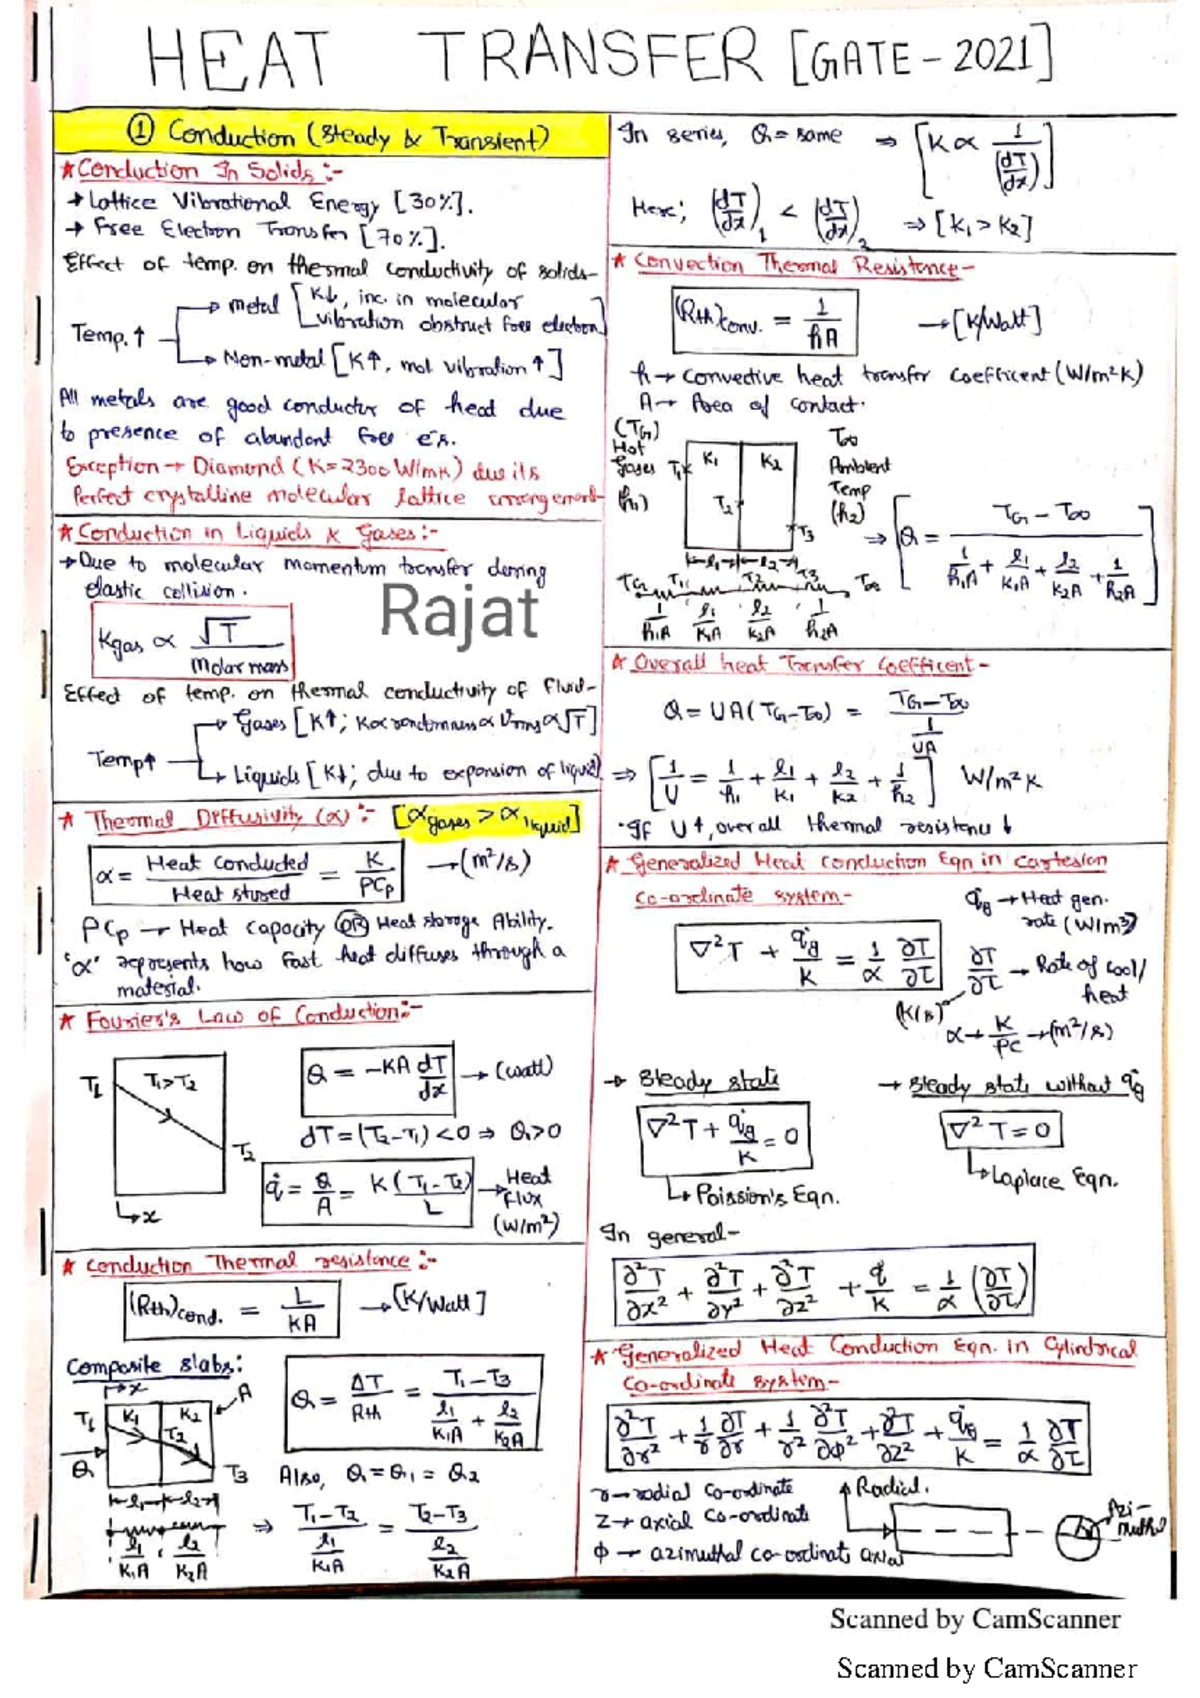 HEAT TRANSFER [GATE - 2021]
① Conduction (Steady & Transient)
★ Conduction In Solids :-
→ Lattice Vibrational Energy [30%].
→ Free Electron Transfer [70%].
Effect of temp. on thermal conductivity of solids-
Temp.↑
→ metal [K↓, inc. in molecular
vibration obstruct free electron]
→ Non-metal [K↑, mol. vibration ↑]
All metals are good conductor of heat due
to presence of abundant free e⁻s.
Exception → Diamond (K=2300 W/mK) due its
Perfect crystalline molecular lattice arrangement-
★ Conduction in Liquids & Gases :-
→ Due to molecular momentum transfer during
elastic collision.
Kgas ∝ √T / Molar mass
Effect of temp. on thermal conductivity of fluid-
Temp↑
→ Gases [K↑; K∝randomness∝Vrms∝√T]
→ Liquids [K↓; due to expansion of liquid]
★ Thermal Diffusivity (α) :- [αgases > αliquid]
α = Heat Conducted / Heat stored = K / ρCp → (m²/s)
ρCp → Heat Capacity OR Heat storage Ability.
'α' represents how fast heat diffuses through a
material.
★ Fourier's Law of Conduction:-
T₁ T₁>T₂ T₂ → x
Q = -KA dT/dx → (watt)
dT = (T₂-T₁) < 0 ⇒ Q>0
q̇ = Q/A = K(T₁-T₂)/L → Heat Flux (W/m²)
★ Conduction Thermal resistance :-
(Rth)cond. = L/KA → [K/Watt]
Composite slabs:
→ x A
T₁ K₁ K₂ T₂ T₃ Q
l₁ l₂
l₁/K₁A , l₂/K₂A
Q = ΔT/Rth = T₁-T₃ / (l₁/K₁A + l₂/K₂A)
Also, Q = Q₁ = Q₂
⇒ T₁-T₂ / (l₁/K₁A) = T₂-T₃ / (l₂/K₂A)
In series, Q = same ⇒ [K ∝ 1/(dT/dx)]
Here; (dT/dx)₁ < (dT/dx)₂ ⇒ [K₁ > K₂]
★ Convection Thermal Resistance-
(Rth)conv. = 1/hA → [K/Watt]
h → Convective heat transfer coefficent (W/m²K)
A → Area of contact.
(TG) Hot gases (h₁) T₁ K₁ K₂ T₂ T₃
T∞ Ambient Temp (h₂)
l₁ l₂
⇒ [Q = TG - T∞ / (1/h₁A + l₁/K₁A + l₂/K₂A + 1/h₂A)]
TG T₁ T₂ T₃ T∞
1/h₁A , l₁/K₁A , l₂/K₂A , 1/h₂A
★ Overall heat Transfer Coefficent-
Q = UA(TG-T∞) = TG-T∞ / (1/UA)
⇒ [1/U = 1/h₁ + l₁/K₁ + l₂/K₂ + 1/h₂] W/m²K
·If U↑, overall thermal resistence ↓
★ Generalized Heat conduction Eqn in cartesion
Co-ordinate system-
q̇g → Heat gen. rate (W/m³)
∇²T + q̇g/K = 1/α ∂T/∂τ
∂T/∂τ → Rate of cool/ heat
(K/s)
α → K/ρC → (m²/s)
→ Steady state
∇²T + q̇g/K = 0
↳ Poission's Eqn.
→ Steady state without q̇g
∇²T = 0
↳ Laplace Eqn.
In general-
∂²T/∂x² + ∂²T/∂y² + ∂²T/∂z² + q̇/K = 1/α (∂T/∂τ)
★ Generalized Heat Conduction Eqn. in Cylindrical
Co-ordinate system-
∂²T/∂r² + 1/r ∂T/∂r + 1/r² ∂²T/∂φ² + ∂²T/∂z² + q̇g/K = 1/α ∂T/∂τ
r → radial co-ordinate
Z → axial co-ordinate
φ → azimuthal co-ordinate
Radial.
axial
Azi-
muthal
Rajat
Scanned by CamScanner
Scanned by CamScanner